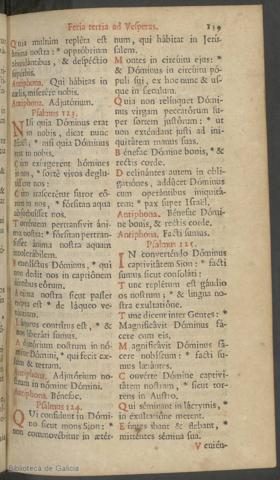 Feria tertia ad Vesperas. 139
Quia multùm repléta est
ánima nostra: * oppróbrium
abundántibus, & despéctio
supérbis.
Antiphona. Qui hábitas in
cælis, miserére nobis.
Antiphona. Adjutórium.
Psalmus 123.
NIsi quia Dóminus erat
in nobis, dicat nunc
Israël: * nisi quia Dóminus
erat in nobis.
Cùm exúrgerent hómines
in nos, * fortè vivos deglu-
tíssent nos:
Cùm irascerétur furor eó-
rum in nos, * fórsitan aqua
absorbuísset nos.
Torréntem pertransívit áni-
ma nostra: * fórsitan pertran-
sísset ánima nostra aquam
intolerábilem.
Benedíctus Dóminus, * qui
non dedit nos in captiónem
déntibus eórum.
Anima nostra sicut passer
erépta est * de láqueo ve-
nántium.
Láqueus contrítus est, * &
nos liberáti sumus.
Adjutórium nostrum in nó-
mine Dómini, * qui fecit cæ-
lum & terram.
Antiphona. Adjutórium no-
strum in nómine Dómini.
Antiphona. Bénefac.
Psalmus 124.
QUi confídunt in Dómi-
no sicut mons Sion: *
non commovébitur in ætér-
num, qui hábitat in Jerú-
salem.
Montes in circúitu ejus: *
& Dóminus in circúitu pó-
puli sui, ex hoc nunc & us-
que in sǽculum.
Quia non relínquet Dómi-
nus virgam peccatórum su-
per sortem justórum: * ut
non exténdant justi ad ini-
quitátem manus suas.
Bénefac Dómine bonis, * &
rectis corde.
Declinántes autem in obli-
gatiónes, addúcet Dóminus
cum operántibus iniquitá-
tem: * pax super Israël.
Antiphona. Bénefac Dómi-
ne, bonis, & rectis corde.
Antiphona. Facti sumus.
Psalmus 125.
IN converténdo Dóminus
captivitátem Sion: * facti
sumus sicut consoláti:
Tunc replétum est gáudio
os nostrum; * & lingua no-
stra exultatióne.
Tunc dicent inter Gentes: *
Magnificávit Dóminus fá-
cere cum eis.
Magnificávit Dóminus fá-
cere nobíscum: * facti su-
mus lætántes.
Convérte Dómine captivi-
tátem nostram, * sicut tor-
rens in Austro.
Qui séminant in lácrymis, *
in exultatióne metent.
Eúntes ibant & flebant, *
mitténtes sémina sua.
Venién-
Biblioteca de Galicia